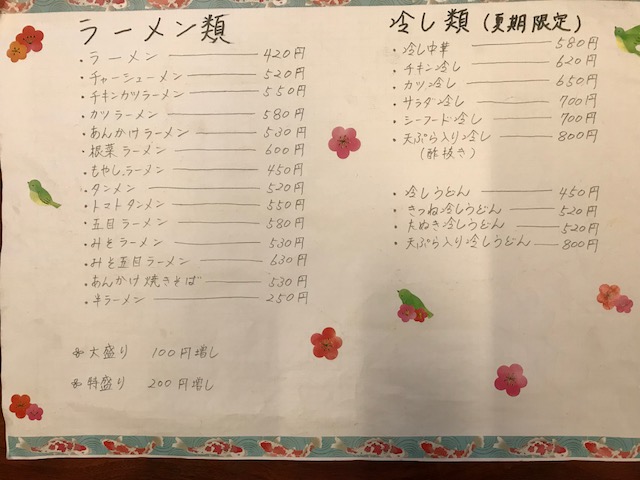 ラーメン類
・ラーメン ――― 420円
・チャーシューメン ――― 520円
・チキンカツラーメン ――― 550円
・カツラーメン ――― 580円
・あんかけラーメン ――― 530円
・根菜ラーメン ――― 600円
・もやしラーメン ――― 450円
・タンメン ――― 520円
・トマトタンメン ――― 550円
・五目ラーメン ――― 580円
・みそラーメン ――― 530円
・みそ五目ラーメン ――― 630円
・あんかけ焼きそば ――― 530円
・半ラーメン ――― 250円
※大盛り 100円増し
※特盛り 200円増し
冷し類(夏期限定)
・冷し中華 ――― 580円
・チキン冷し ――― 620円
・カツ冷し ――― 650円
・サラダ冷し ――― 700円
・シーフード冷し ――― 700円
・天ぷら入り冷し ――― 800円
(酢抜き)
・冷しうどん ――― 450円
・きつね冷しうどん ――― 520円
・たぬき冷しうどん ――― 520円
・天ぷら入り冷しうどん ――― 800円